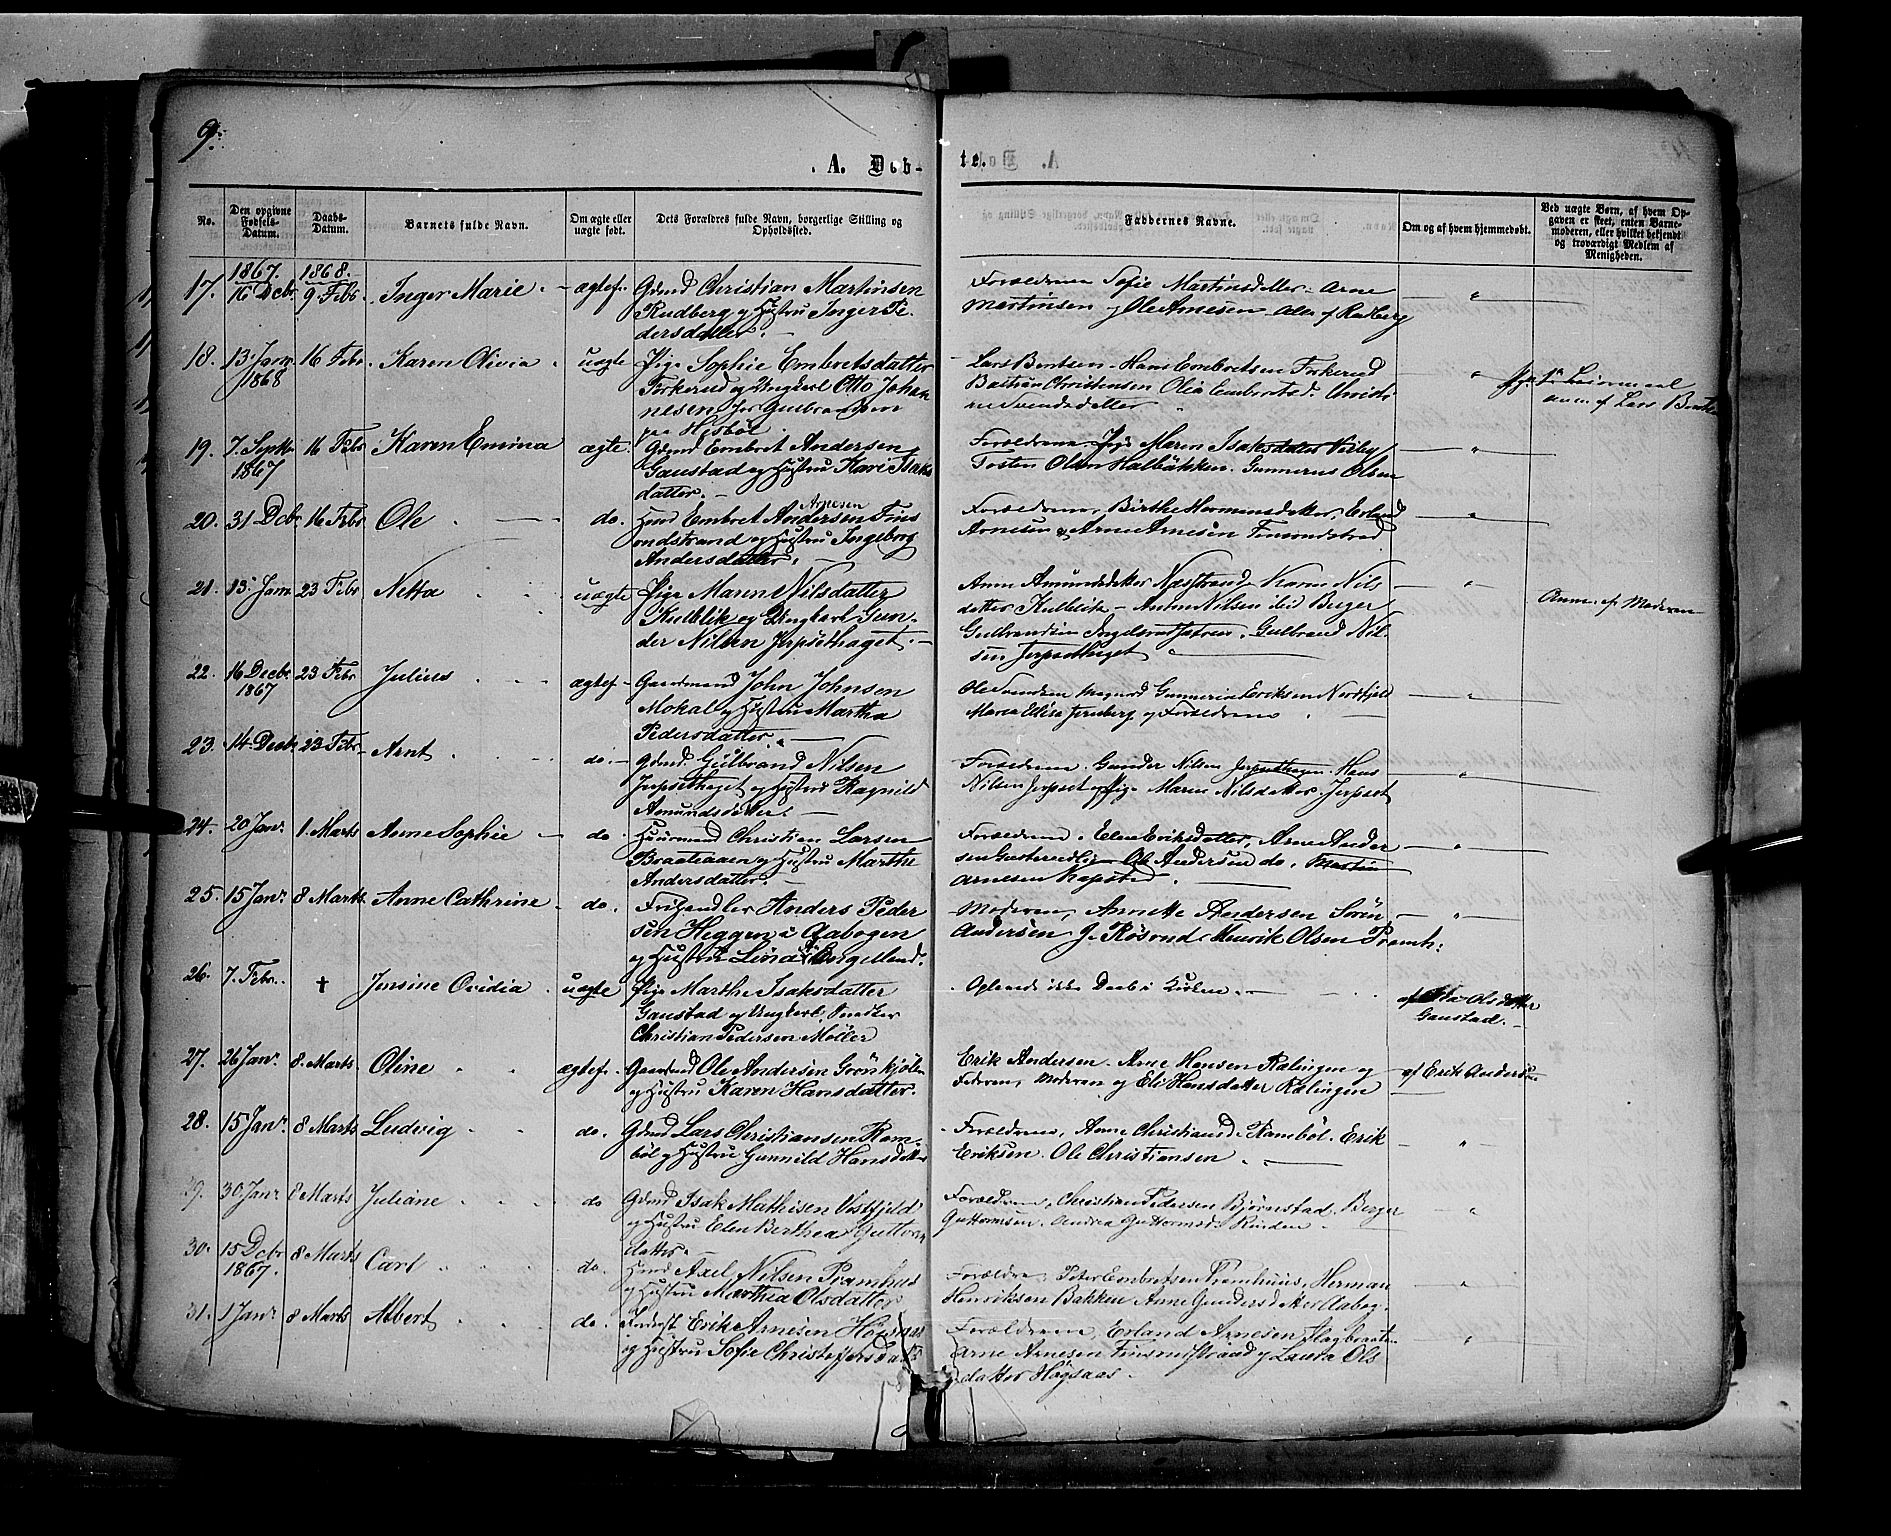 9.
A. Døb-
te.
No.
Den opgivne Fødsels-Datum.
Daabs-Datum.
Barnets fulde Navn.
Om ægte eller uægte født.
Dets Forældres fulde Navn, borgerlige Stilling og Opholdssted.
Faddernes Navne.
Om og af hvem hjemmedøbt.
Ved uægte Børn, af hvem Opgaven er skeet, enten Barnemoderen, eller hvilket bekjendt og troværdigt Medlem af Menigheden.
17. 1867. 16 Dcbr 1868. 9 Febr. Inger Marie ægtef. Gdmd Christian Martinsen
Rudberg og Hustru Inger Pe-
dersdatter.
Forældrene Sofie Martinsdatter. Arne
Martinsen og Ole Arnesen Alle af Rudberg
18. 13 Janr 1868 16 Febr. Karen Olivia uægte Pige Sophie Embretsdatter
Torkerud og Ungkarl Otto Johan-
nesen
paa
Lars Berntsen Hans Embretsen Torkerud
Bastian Christensen Olia Embretsd. Christi-
ne Svendsdatter
anm. af Lars
19. 7 Septbr 1867 16 Febr Karen Emma ægte. Gdmd Embret Andersen
Gaustad og Hustru Kari Isaks
datter.
Forældrene Pige Maren Isaksdatter
Tosten Olsen Halbäkken. Gunnerus Olsen
20. 31 Dcbr 16 Febr Ole do. Arnesen
Embret Andersen
og Hustru Ingeborg
Andersdatter.
Forældrene, Birthe Hermansdatter, Erland
Arnesen & Arne Arnesen
21. 13 Janr 23 Febr Netta uægte Pige Maren Nilsdatter
Kulblik og Ungkarl Gun-
der Nilsen Jerpsethaget.
Anne Amundsdatter Næstrand Karen Nils
datter Kulblik Nilsen ibid Berger
Gulbrandsen Gulbrand Nil-
sen Jerpsethaget
Anm. af Moderen
22. 16 Decbr 1867 23 Febr Julius ægtef. Gaardmand John Johnsen
Mokal og Hustru Martha
Pedersdatter.
Ole Svendsen Gunnerius Eriksen Nordfjeld
Maren Elise Jernberg og Forældrene
23. 14 Decbr 23 Febr Arnt do. Gdmd. Gulbrand Nilsen
Jerpsethaget og Hustru Ragnild
Amundsdatter.
Forældrene. Gunder Nilsen Jerpsethagen. Hans
Nilsen Jerpset og Pige Maren Nilsdatter Jerpset
24. 20 Janr. 1. Marts Anne Sophie do. Huusmand Christian Larsen
Braataaen og Hustru Marthe
Andersdatter.
Forældrene. Elene Eriksdatter, Arne Ander
sen Ole Andersen do. Martin
Arnesen Kapstad.
25. 15 Janr. 8 Marts. Anne Cathrine do. Frihandler Anders Peder
sen Heggen i Aabogen
og Hustru Lina
Moderen, Annette Andersen Sören
Andersen G. Rösond Henrik Olsen Pramh:
26. 7. Febr. † Jensine Ovidia uægte Pige Marthe Isaksdatter
Gaustad og Ungkarl
Christian Pedersen Möller
Oplevede ikke Daab i Kirken.
af Olsdatter
Gaustad.
27. 26 Janr. 8. Marts Oline ægtef. Gaardmd Ole Andersen Grönkjölen
og Hustru Karen Hansdatter.
Erik Andersen. Arne Hansen Kalingen og
Faderen, Moderen og Eli Hansdatter Kalingen
af Erik Andersen
28. 15 Janr. 8 Marts Ludvig do. Gdmd Lars Christiansen Ram-
böl og Hustru Gunnild Hansdatter
Forældrene, Anne Christiansd. Ramböl. Erik
Eriksen. Ole Christiansen.
29. 30 Janr 8 Marts Juliane do Gdmd Isak Mathisen Vestfjeld
og Hustru Elen Berthea Guttorm
datter.
Forældrene, Christian Pedersen Bjørnstad. Berger
Guttormsen. Andrea Guttormsd. Rinden
30. 15 Dcbr 1867. 8 Marts Carl do. Axel Nilsen Pramhus
og Hustru Marthea Olsdatter
Forældre. Peter Embretsen Pramhuus, Herman
Henriksen Bakken Anne Gundersdatter Aabog.
31. 1 Janr. 8 Marts Albert do. Erik Arnesen
og Hustru Sofie Christoffersdatter
Forældrene, Erland Arnesen
Arne Arnesen og Laura Ols
datter Högsaas.